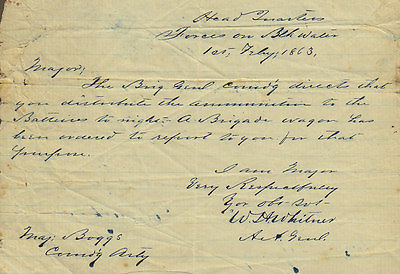 Head Quarters
Forces on Blk Water
1st, Feby, 1863,
Major,
The Brig Genl Comdg directs that
you distribute the ammunition to the
Batteries to night - A Brigade wagon has
been ordered to report to you for that
purpose.
I am Major
Very Respectfully
Yor obt Svt
W. D. Whitner
A. A. Genl.
Maj. Boggs
Comdg Arty